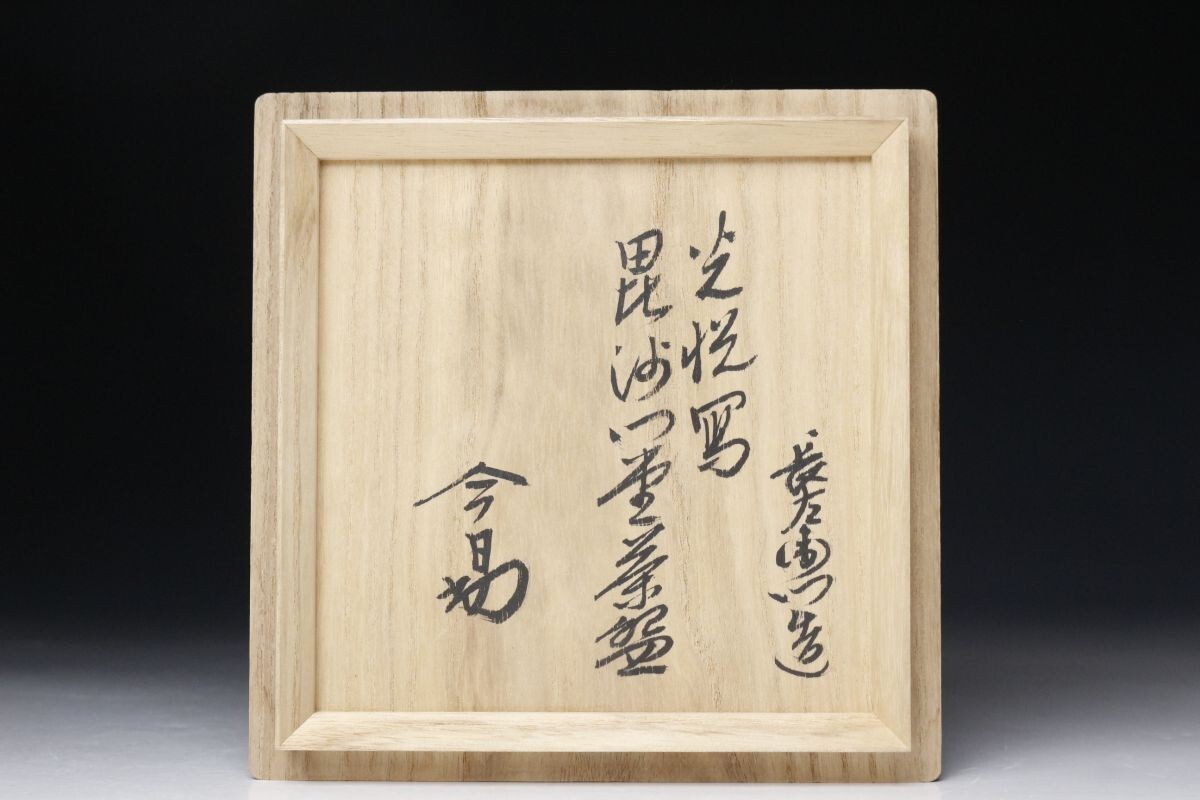 長左衛門造
光悦寫
毘沙門堂茶盌
今日